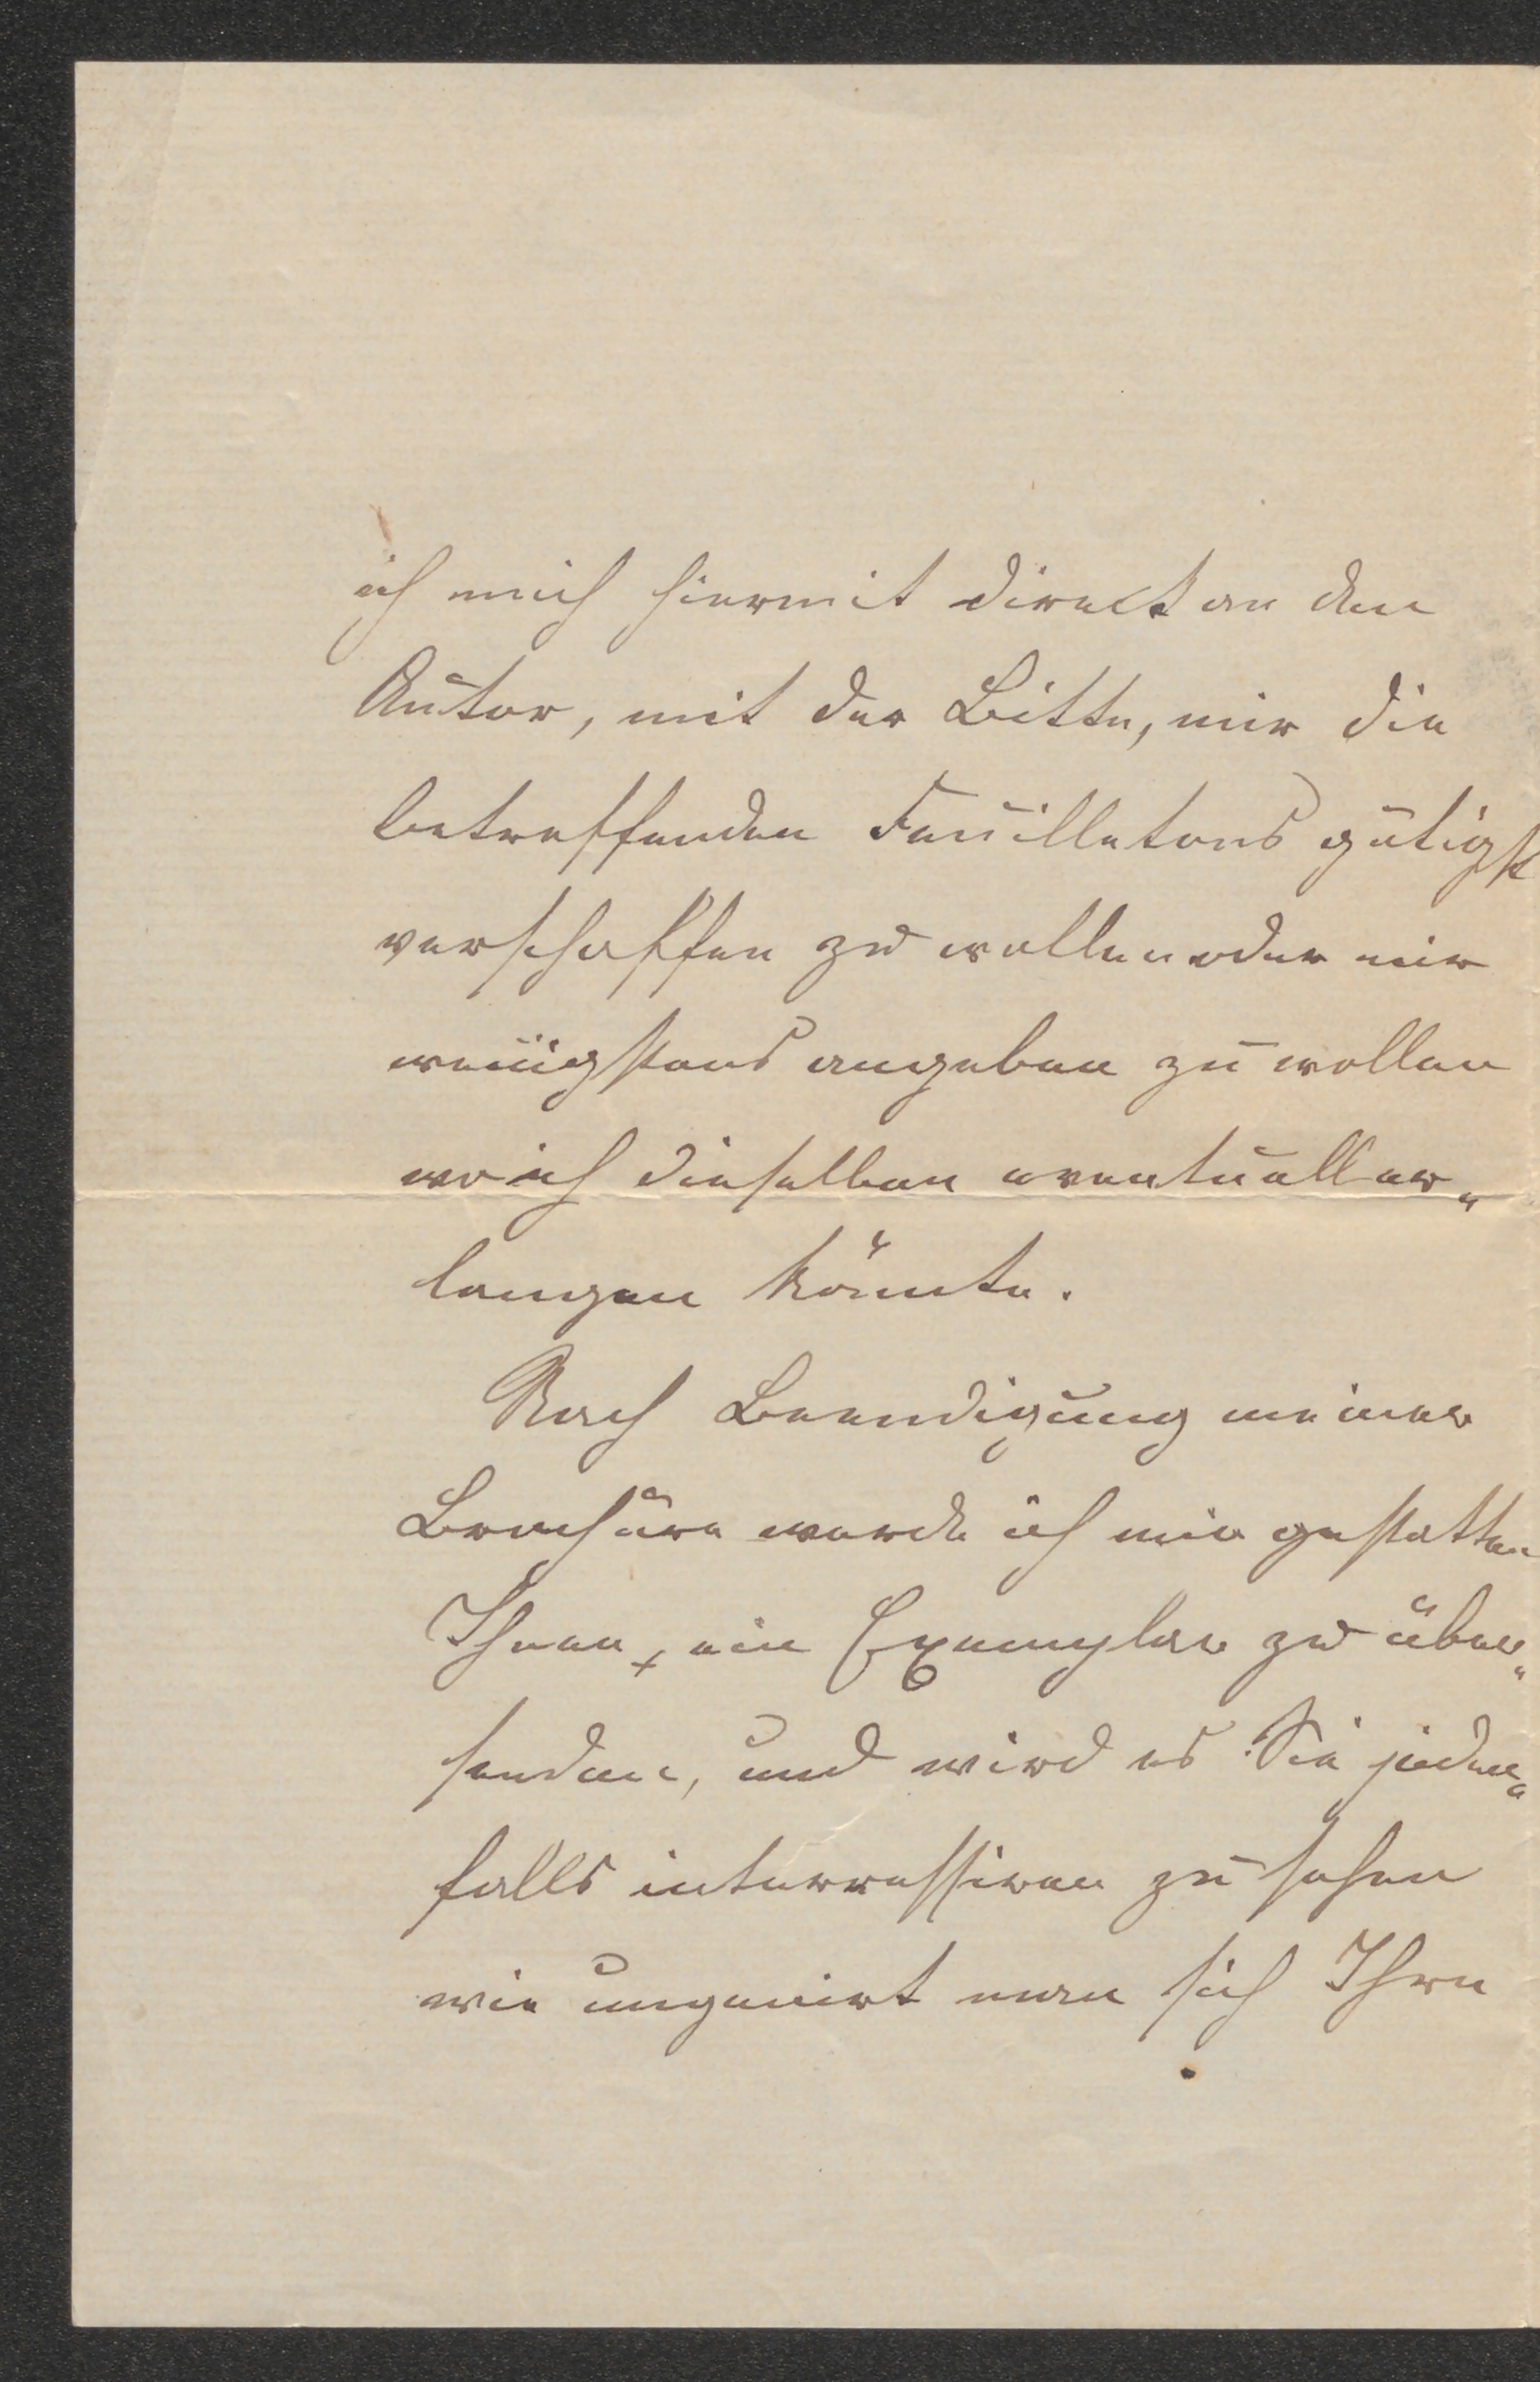 ich mich hiermit direckt an den
Autor, mit der Bitte, mir die
betreffenden Feuilletons gütigst
verschaffen zu wollen oder mir
wenigstens angeben zu wollen
wo ich dieselben eventuell er„
langen könnte.
Nach Beendigung meiner
Brochüre werde ich mir gestatten
Ihnen, ein Exemplar zu über„
senden, und wird es Sie jeden„
falls interressiren zu sehen
wie ungenirt man sich Ihre